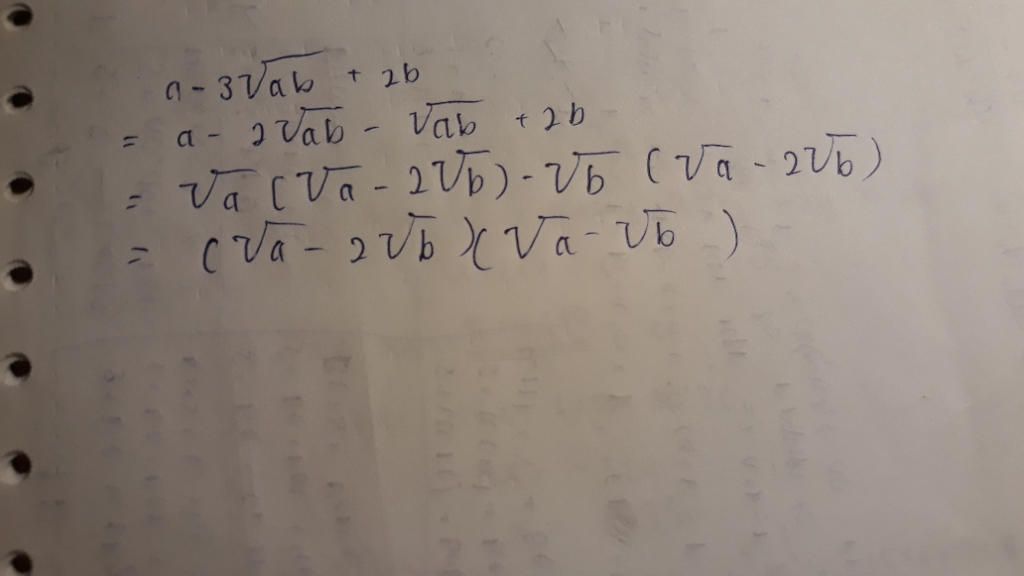 a - 3√ab + 2b
= a - 2√ab - √ab + 2b
= √a (√a - 2√b) - √b (√a - 2√b)
= (√a - 2√b)(√a - √b)